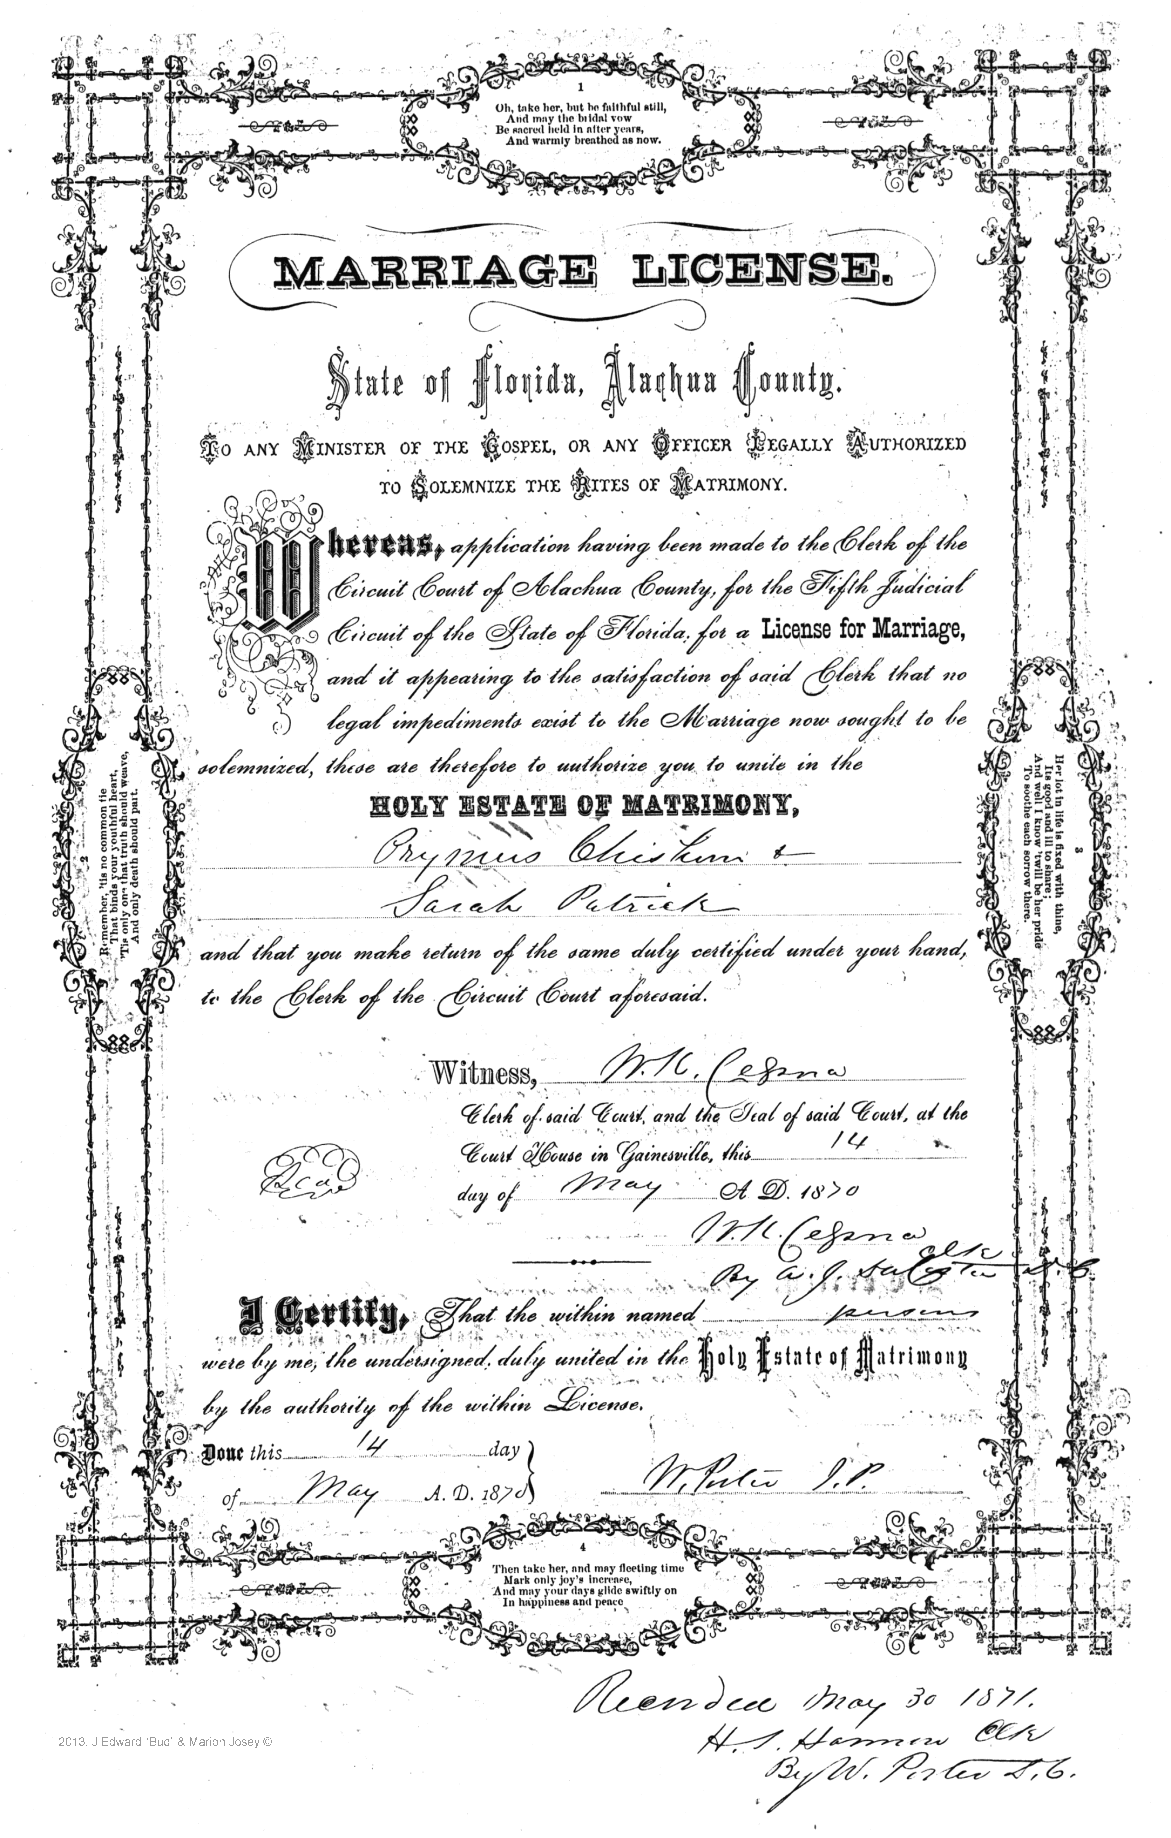 1
Oh, take her, but be faithful still,
And may the bridal vow
Be sacred held in after years,
And warmly breathed as now.
MARRIAGE LICENSE.
State of Florida, Alachua County.
TO ANY MINISTER OF THE GOSPEL, OR ANY OFFICER LEGALLY AUTHORIZED
TO SOLEMNIZE THE RITES OF MATRIMONY.
Whereas, application having been made to the Clerk of the
Circuit Court of Alachua County, for the Fifth Judicial
Circuit of the State of Florida, for a License for Marriage,
and it appearing to the satisfaction of said Clerk that no
legal impediments exist to the Marriage now sought to be
solemnized, these are therefore to authorize you to unite in the
HOLY ESTATE OF MATRIMONY,
&
Sarah Patrick
and that you make return of the same duly certified under your hand,
to the Clerk of the Circuit Court aforesaid.
Witness, W. K. Cessna
Clerk of said Court, and the Seal of said Court, at the
Court House in Gainesville, this 14
day of May A. D. 1870
Seal
W. K. Cessna
Clk
By A. J. D. C.
I Certify, That the within named persons
were by me, the undersigned, duly united in the Holy Estate of Matrimony
by the authority of the within License.
Done this 14 day
of May A. D. 1870
W. Porter J. P.
2
Remember, 'tis no common tie
That binds your youthful heart,
'Tis only one that truth should weave,
And only death should part.
3
Her lot in life is fixed with thine,
Its good and ill to share;
And well I know 'twill be her pride
To soothe each sorrow there.
4
Then take her, and may fleeting time
Mark only joy's increase,
And may your days glide swiftly on
In happiness and peace
Recorded May 30 1871.
H. S. Harmon Clk
By W. Porter D. C.
2013. J Edward 'Bud' & Marion Josey ©